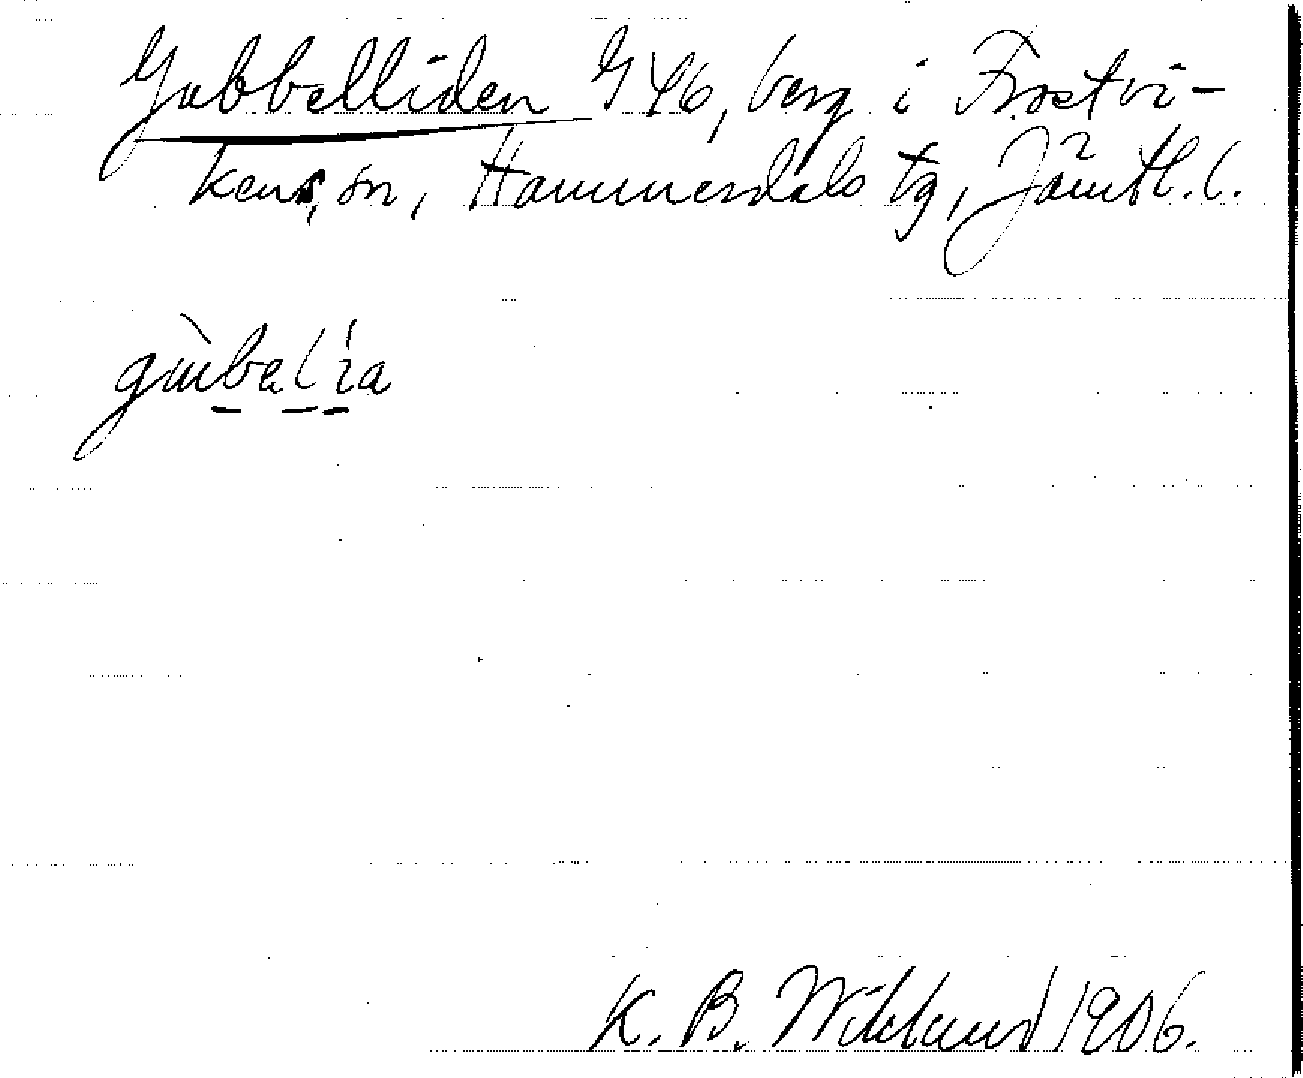 Gubbelliden G46, berg i Frostvi-
kens sn, Hammerdals tg, Jämtl. l.
gùbalía
K. B. Wiklund 1906.